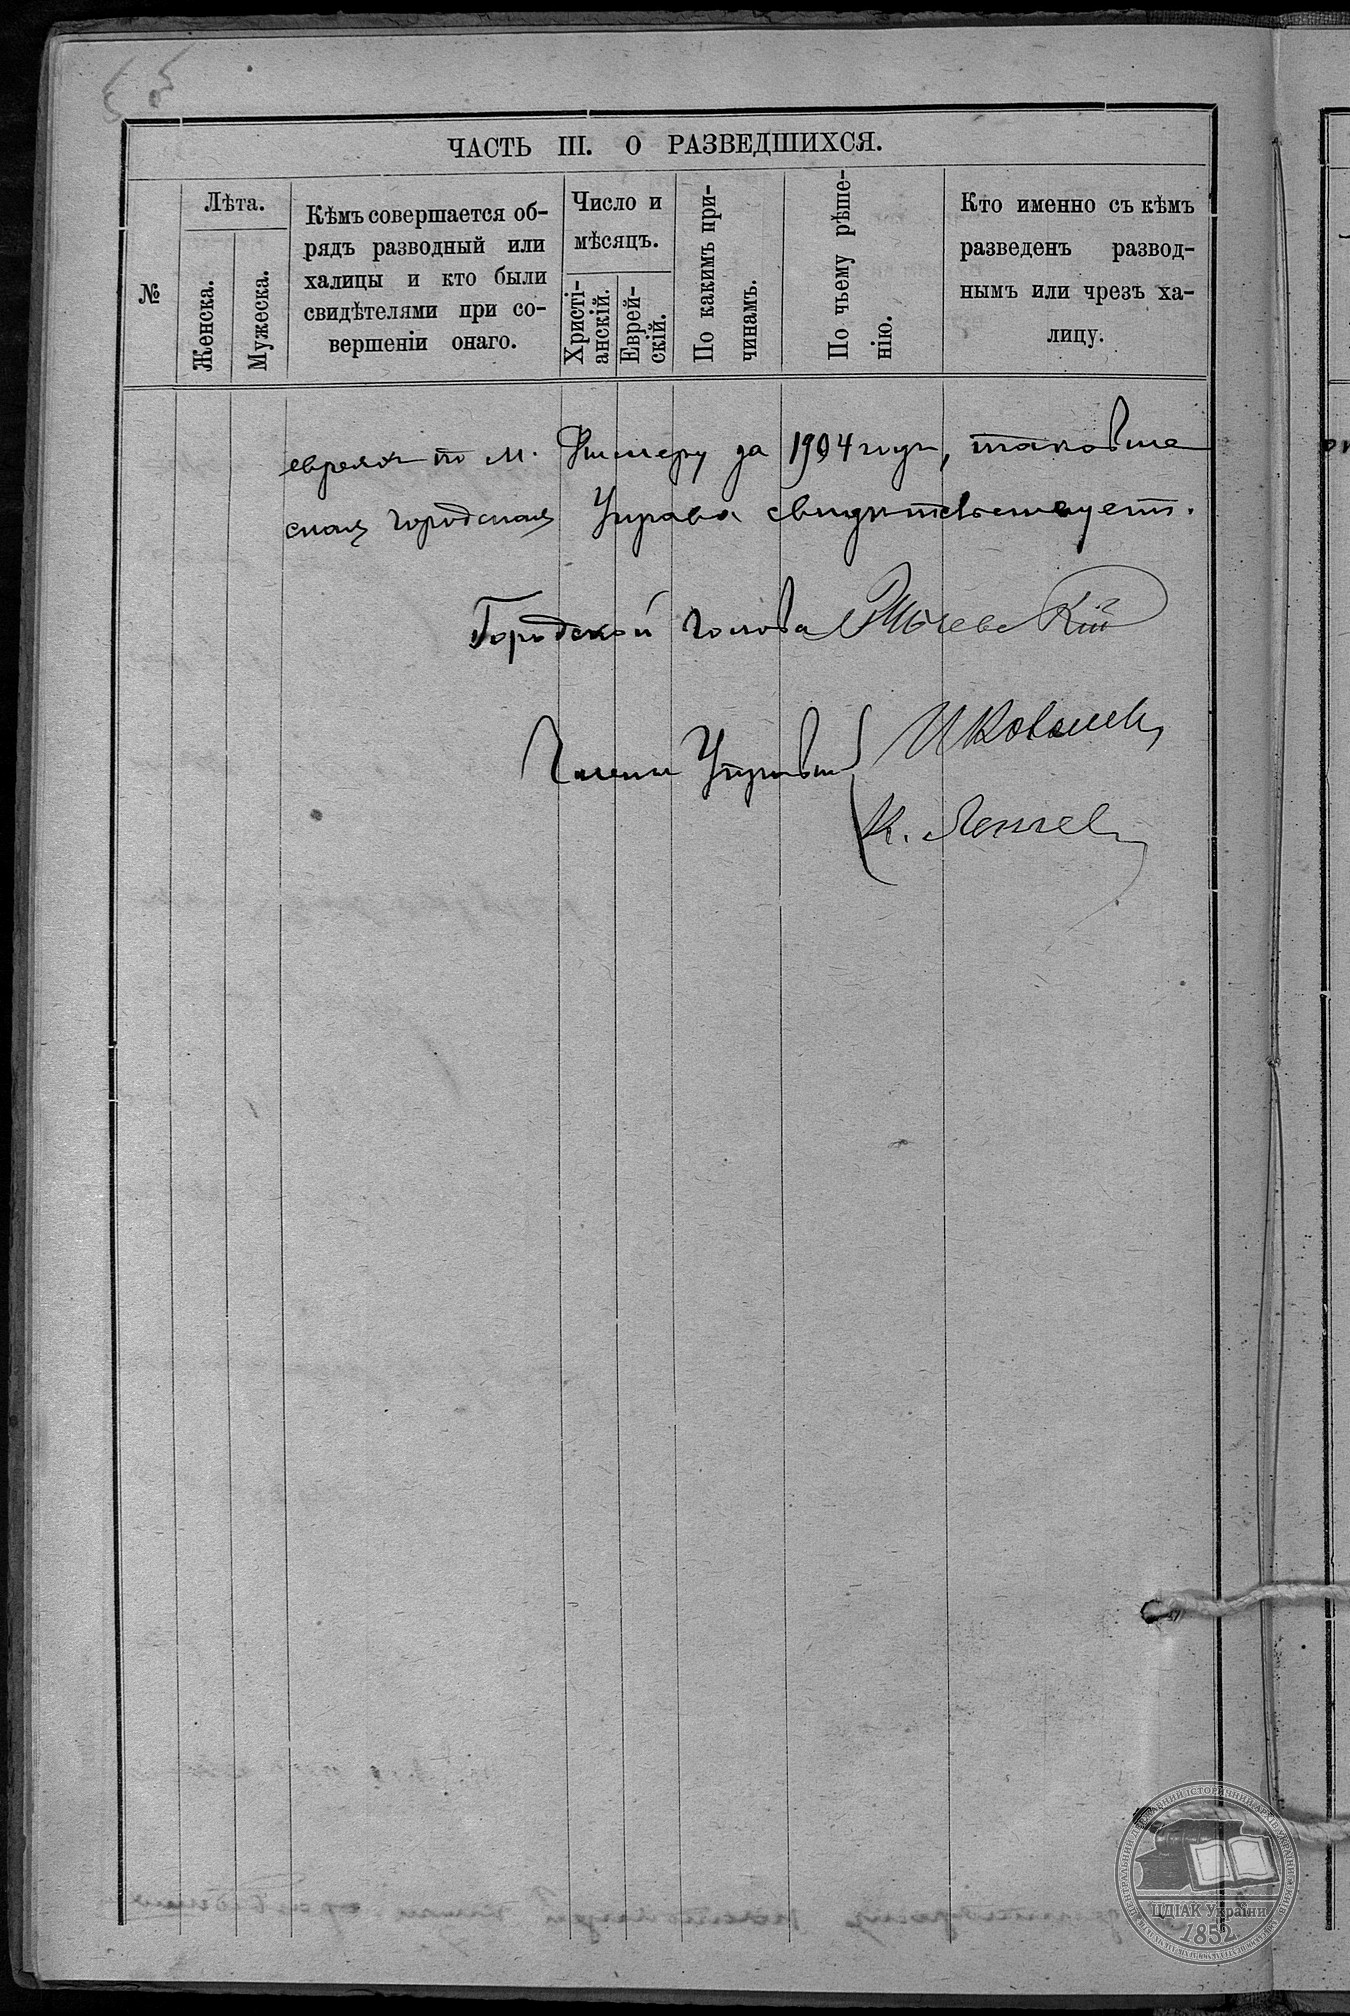 ЧАСТЬ III. О РАЗВЕДШИХСЯ.
№
Лѣта.
Женска.
Мужеска.
Кѣмъ совершается об-
рядъ разводный или
халицы и кто были
свидѣтелями при со-
вершеніи онаго.
Число и
мѣсяцъ.
Христі-
анскій.
Еврей-
скій.
По какимъ при-
чинамъ.
По чьему рѣше-
нію.
Кто именно съ кѣмъ
разведенъ развод-
нымъ или чрезъ ха-
лицу.
евреях по м. за 1904 годъ,
ская городская Управа свидѣтельствуетъ.
Городской голова
Члены Управы
И Ковалевъ
К.
ЦДІАК України
1852